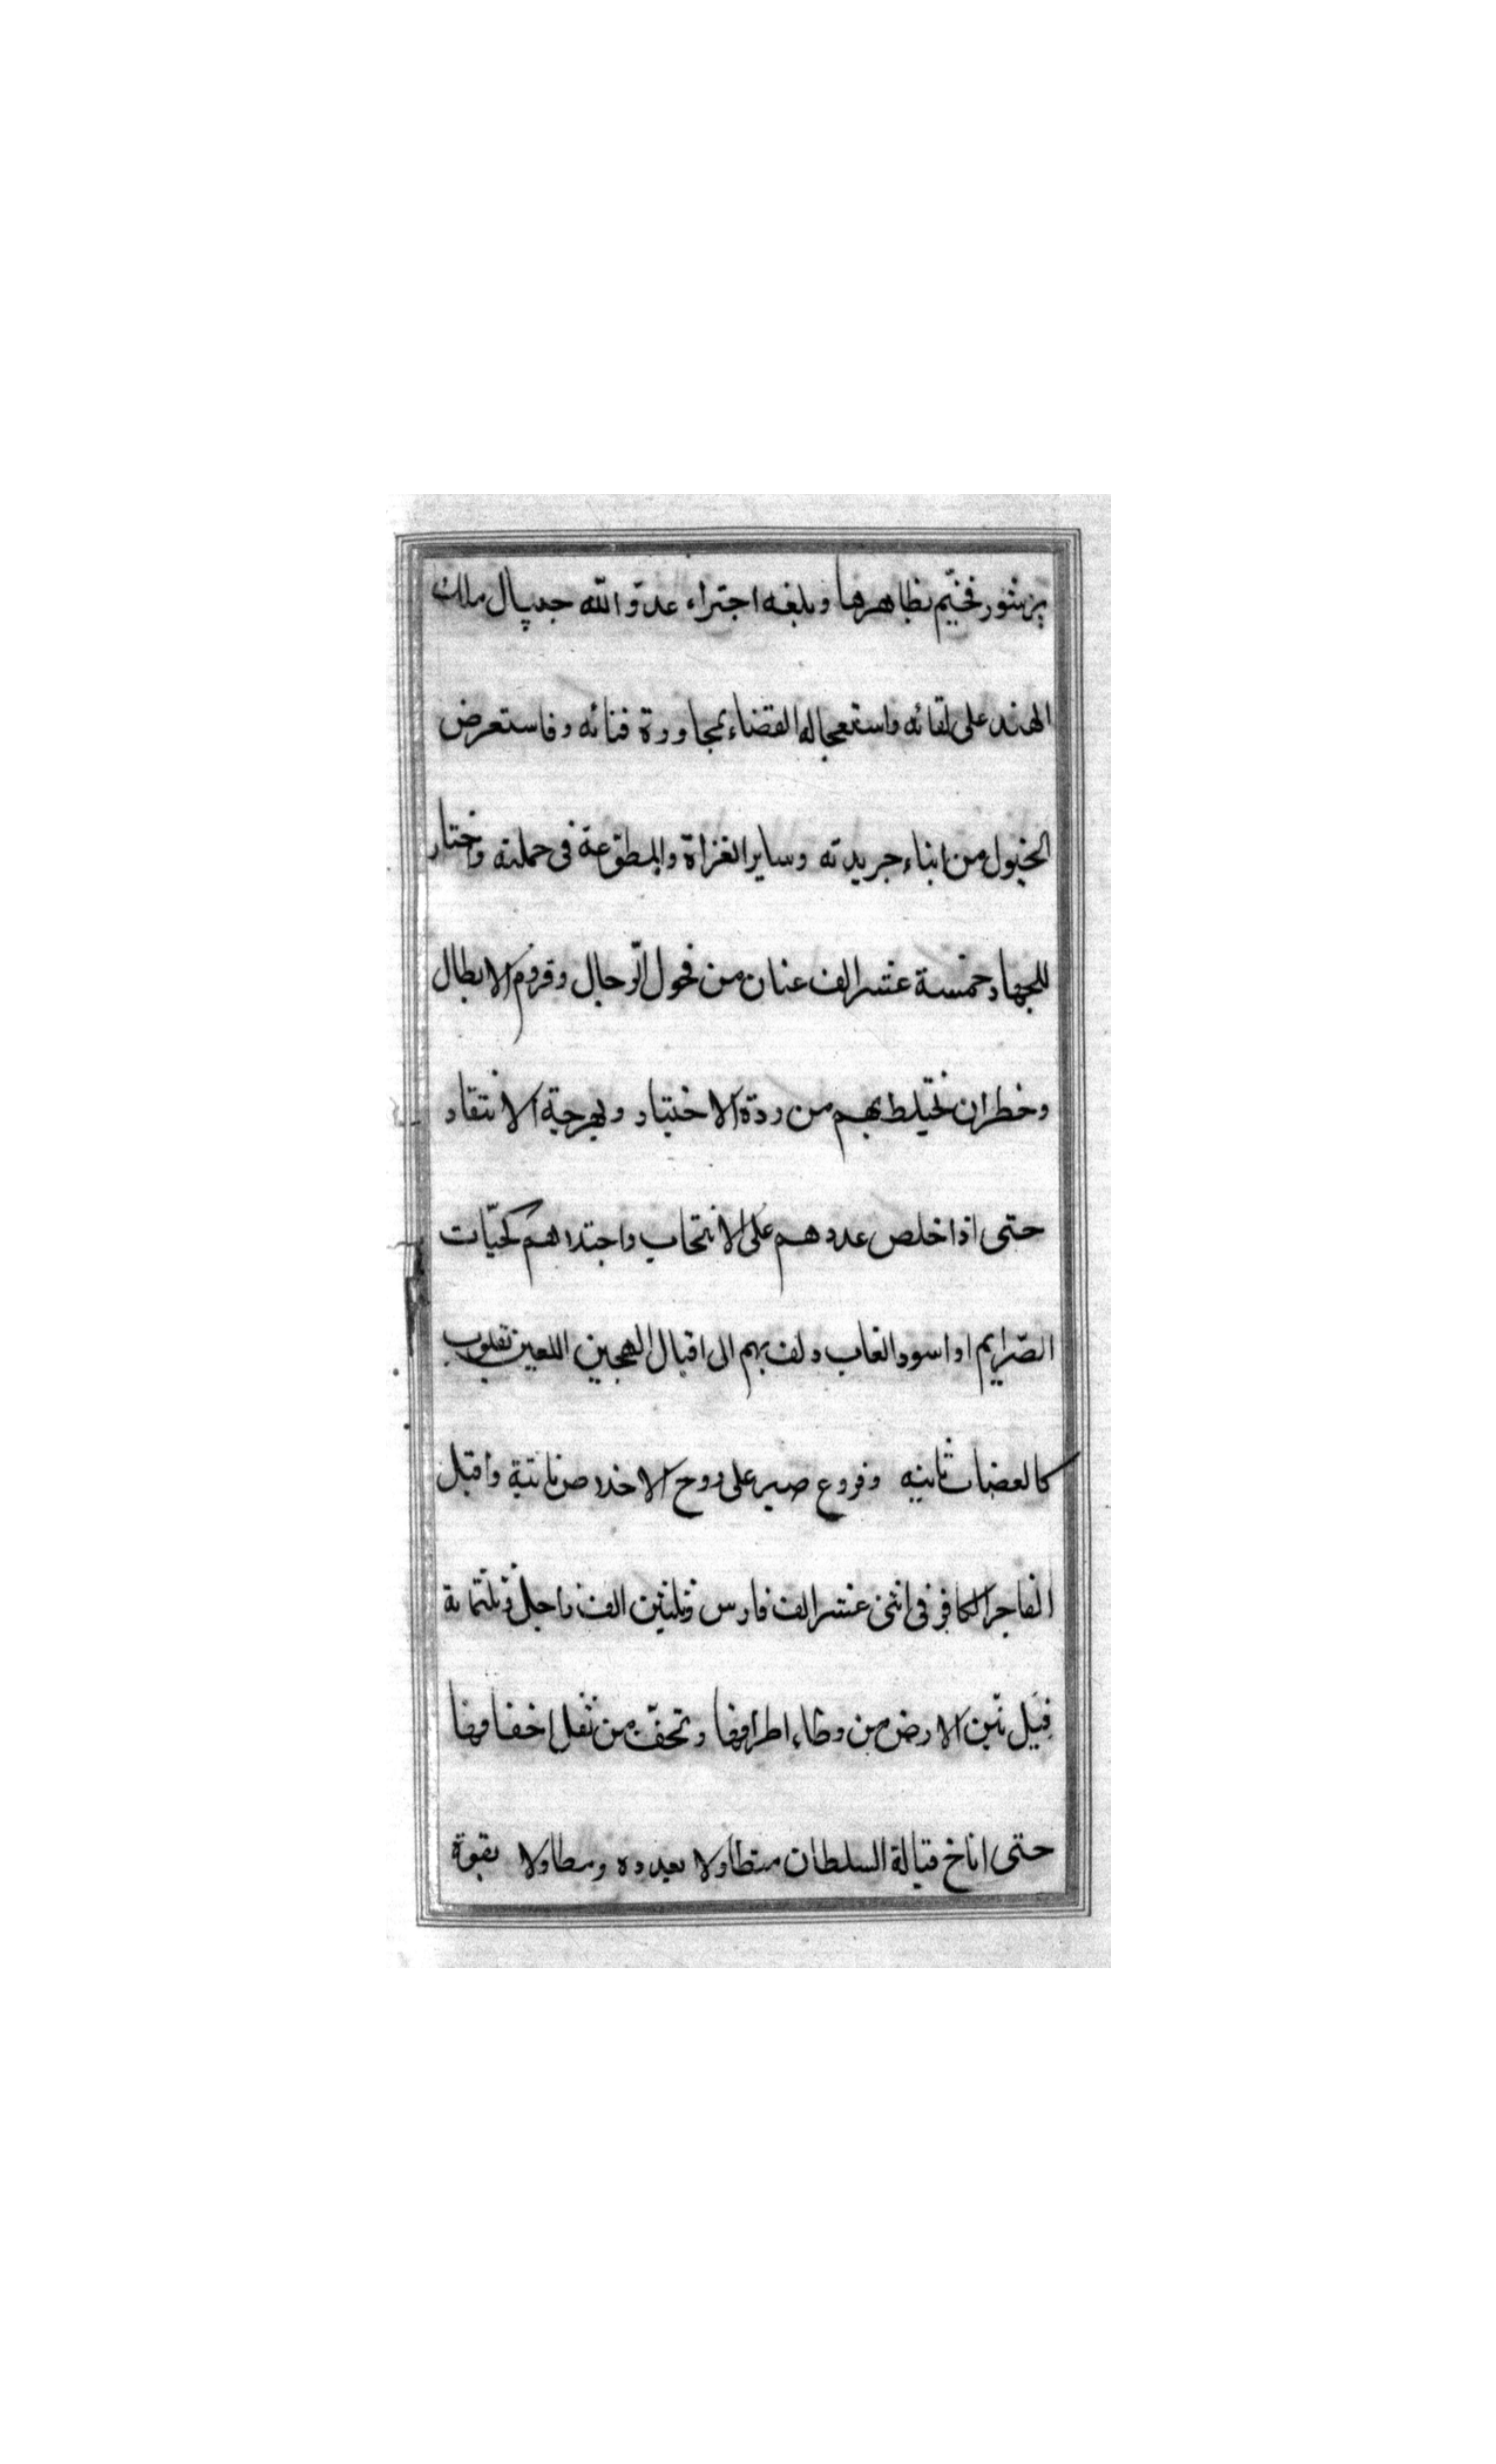 پرشور فخيّم بظاهرها وبلغه اجتراء عدوّ الله جيپال ملك
الهند على لقائه واستعجاله القضاء بمجاورة فنائه وفاستعرض
الخيول من ابناء جريدته وساير الغزاة والمطوّعة فى حملته واختار
للجهاد خمسة عشر الف عنان من فحول الرّجال وقروم الابطال
وخطر ان تختلط بهم من ردة الاختيار وبهرجة الانتقاد
حتى اذا خلص عددهم على الانتخاب واجتداهم كحيّات
الصّرايم او اسود الغاب ولف بهم الى اقبال الهجين اللعين بقلوب
كالهضاب ثابته وفروع صبر على دوح الاخلاص نابتة واقبل
الفاجر الكافر فى اثنى عشر الف فارس وثلثين الف راجل وثلثماية
فيل تئن الارض من وطاء اطرافها وتخفّ من ثقل اخفافها
حتى اناخ قبالة السلطان متطاولا بعدده ومطاولا بقوة